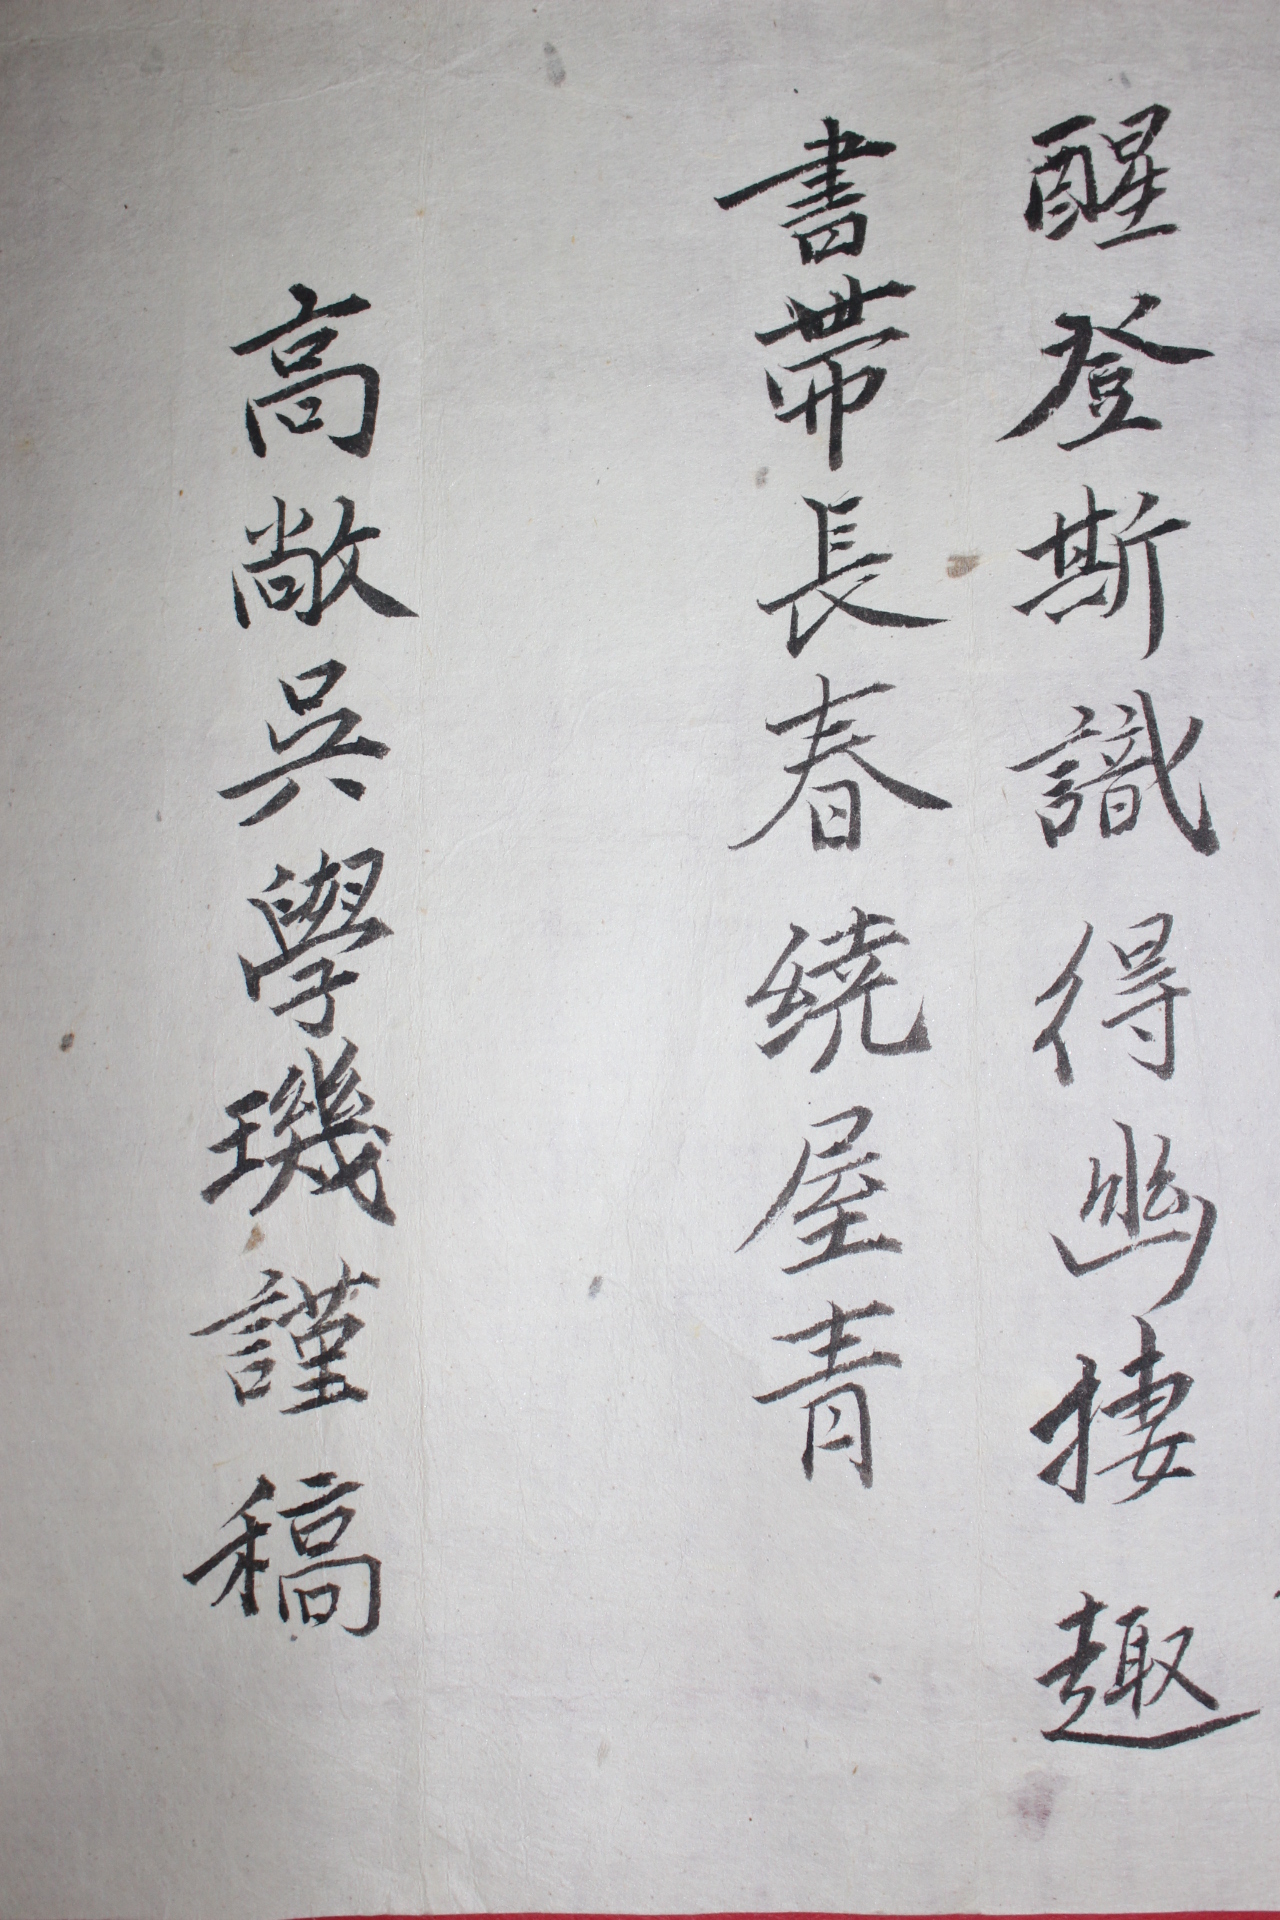 醒登斯識得幽棲趣
書帶長春繞屋青
高敞吳學璣謹稿